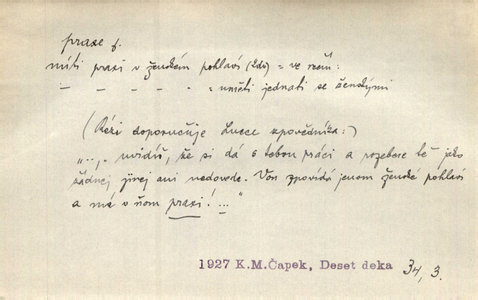 praxe f.
míti praxi v ženském pohlaví (lid.) = ve rčení:
– – – – – = uměti jednati se ženskými
(Režii doporučuje Lucce zpovědníka:)
"..., uvidíš, že si dá s tebou práci a rozebere tě jako
žádnej jinej ani nedovede. Von zpovídá jenom ženské pohlaví
a má v ňom praxi! ..."
1927 K.M.Čapek, Deset deka 34, 3.